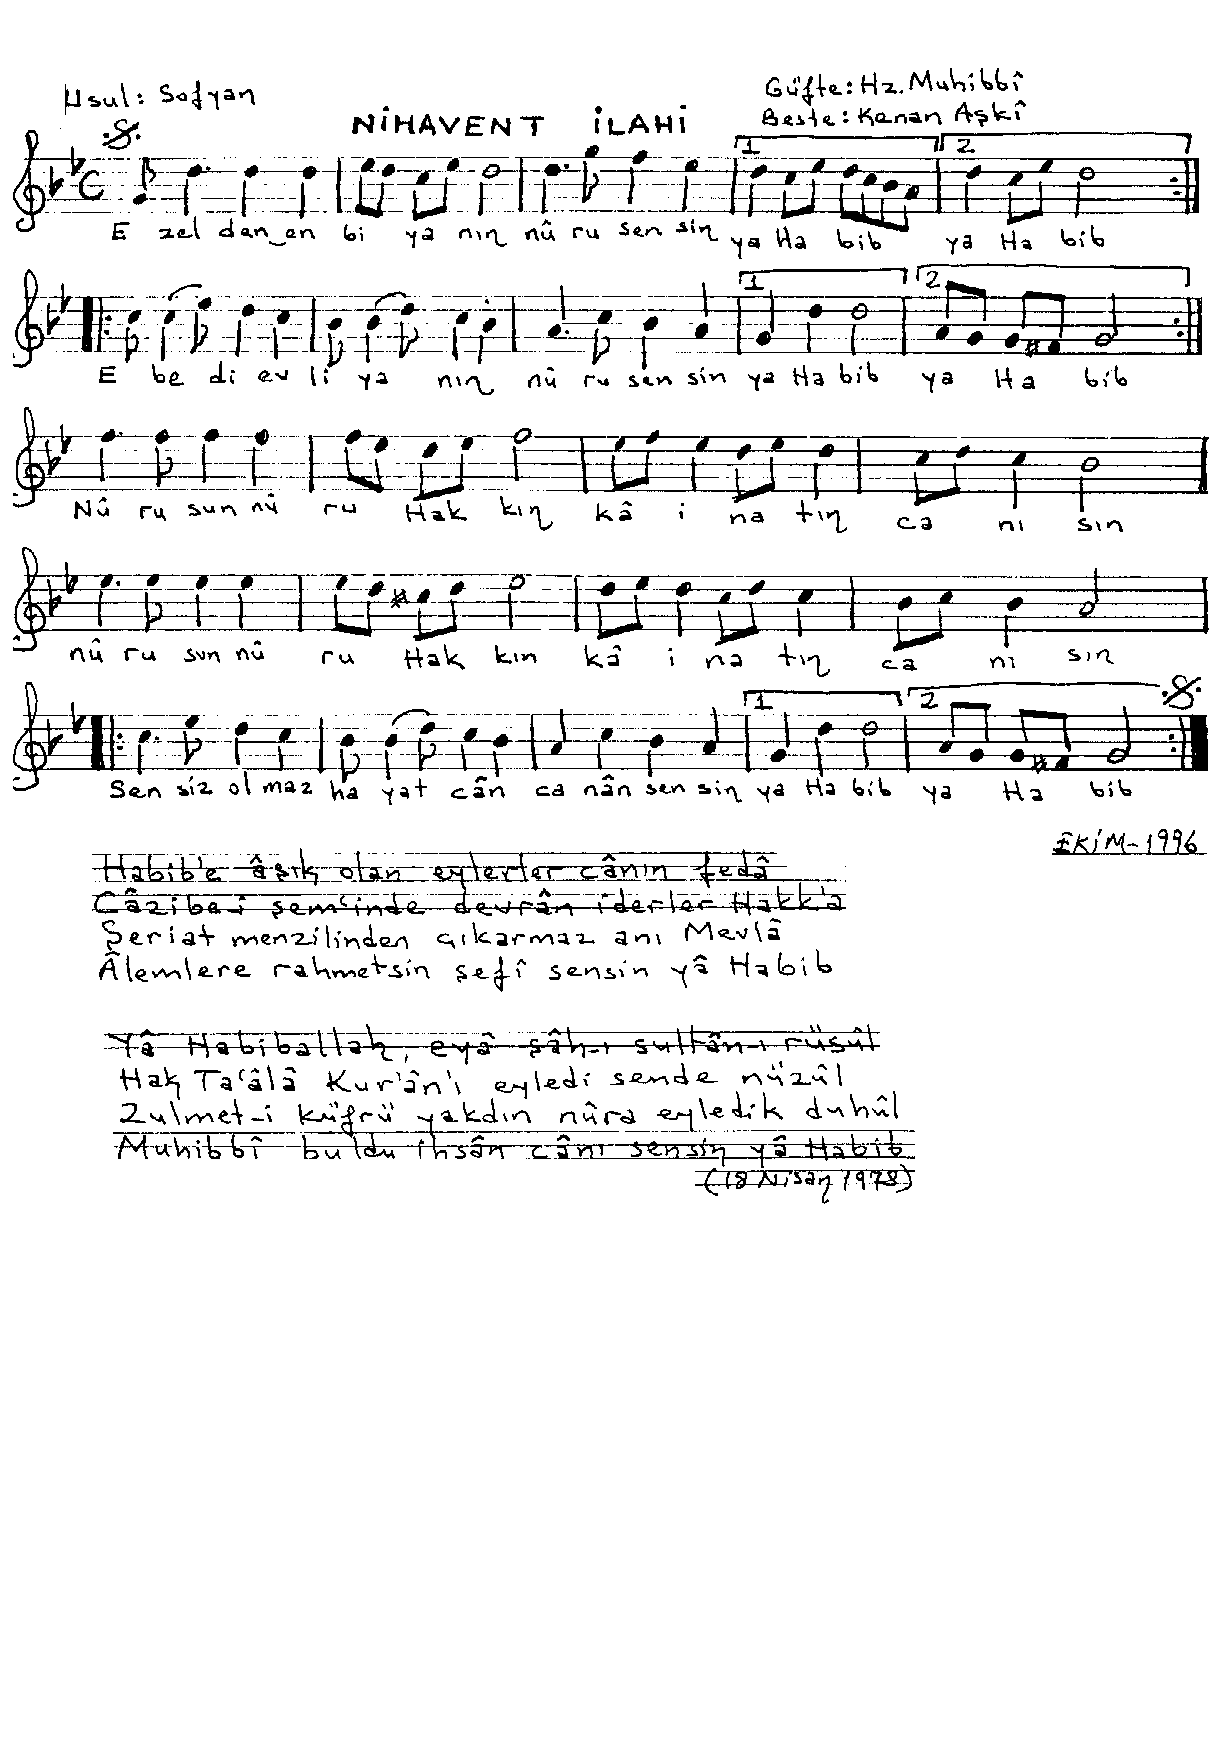 Usul: Sofyan
Güfte: Hz. Muhibbî
NİHAVENT İLAHİ
Beste: Kenan Aşkî
1 2
E zel den en bi ya nın nû ru sen sin ya Ha bib ya Ha bib
1 2
E be di ev li ya nın nû ru sen sin ya Ha bib ya Ha bib
Nû ru sun nû ru Hak kın kâ i na tın ca nı sın
nû ru sun nû ru Hak kın kâ i na tın ca nı sın
1 2
Sen siz ol maz ha yat cân ca nân sen sin ya Ha bib ya Ha bib
EKİM-1996
Habib'e âşık olan eylerler cânın fedâ
Câzibe-i şems'inde devrân iderler Hakk'a
Şeriat menzilinden çıkarmaz anı Mevlâ
Âlemlere rahmetsin şefî sensin yâ Habib
Yâ Habiballah, eyâ şâh-ı sultân-ı rüsûl
Hak Ta'âlâ Kur'ân'ı eyledi sende nüzûl
Zulmet-i küfrü yakdın nûra eyledik duhûl
Muhibbî buldu ihsân cânı sensin yâ Habib
(18 Nisan 1978)